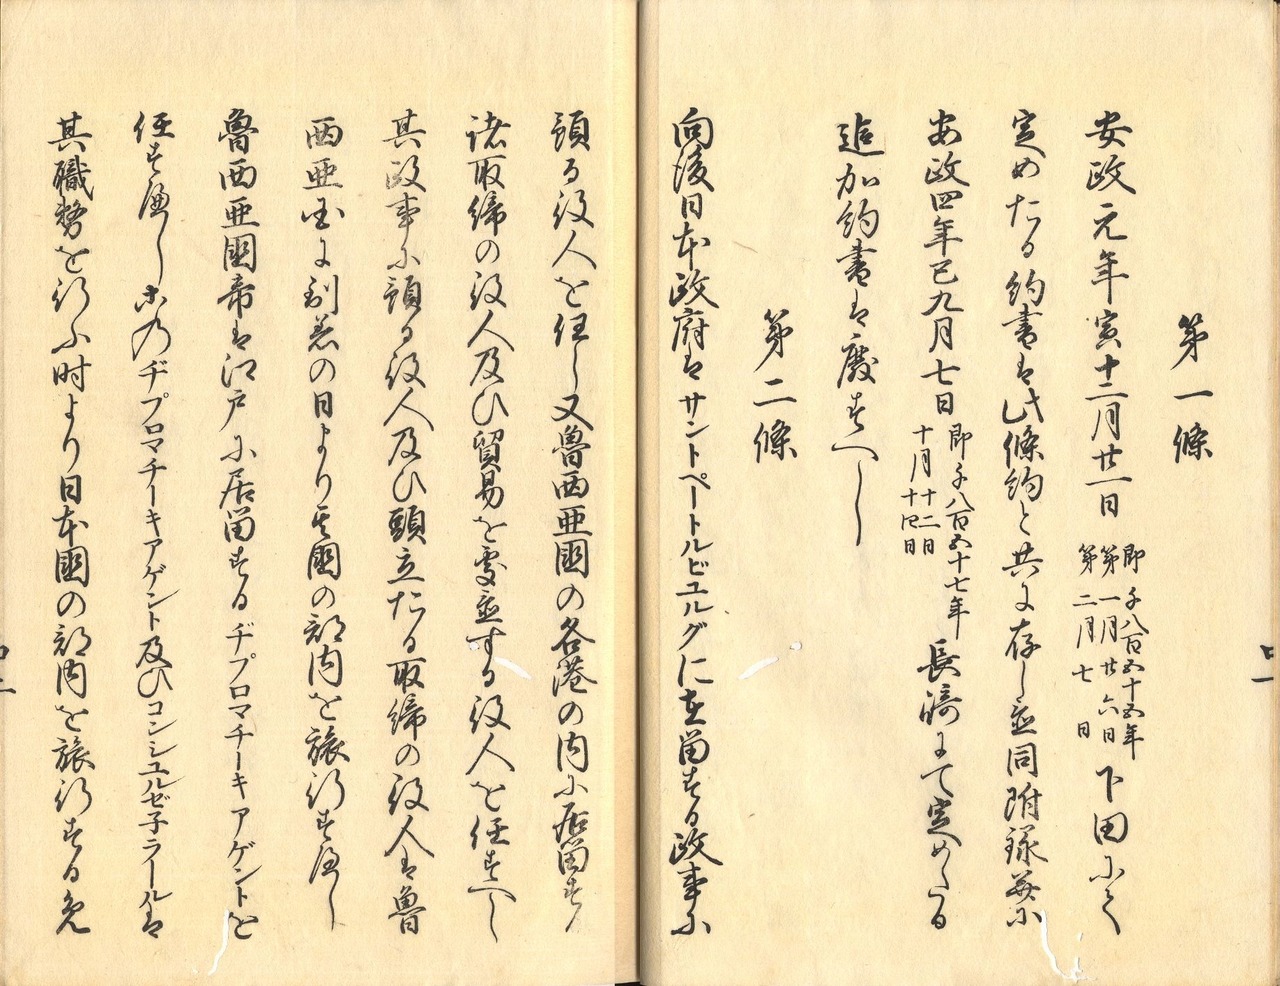 第一條
安政元年寅十二月廿一日 即千八百五十五年 第一月廿六日 第二月七日 下田にて
定めたる約書は此條約と共に存し並同附録並に
安政四年巳九月七日 即千八百五十七年 十月十二日 十月廿四日 長﨑にて定めたる
追加約書は廢すへし
第二條
向後日本政府はサントペートルビユルグに在留する政事に
頭る役人を任し又魯西亜國の各港の内に居留する
諸取締の役人及ひ貿易を處置する役人を任すへし
其政事に頭る役人及ひ頭立たる取締の役人は魯
西亜國に到着の日より其國の部内を旅行すへし
魯西亜國帝は江戸に居留するヂプロマチーキアゲントを
任すへしこのヂプロマチーキアゲント及ひコンシユルゼ子ラールは
其職務を行ふ時より日本國の部内を旅行する免